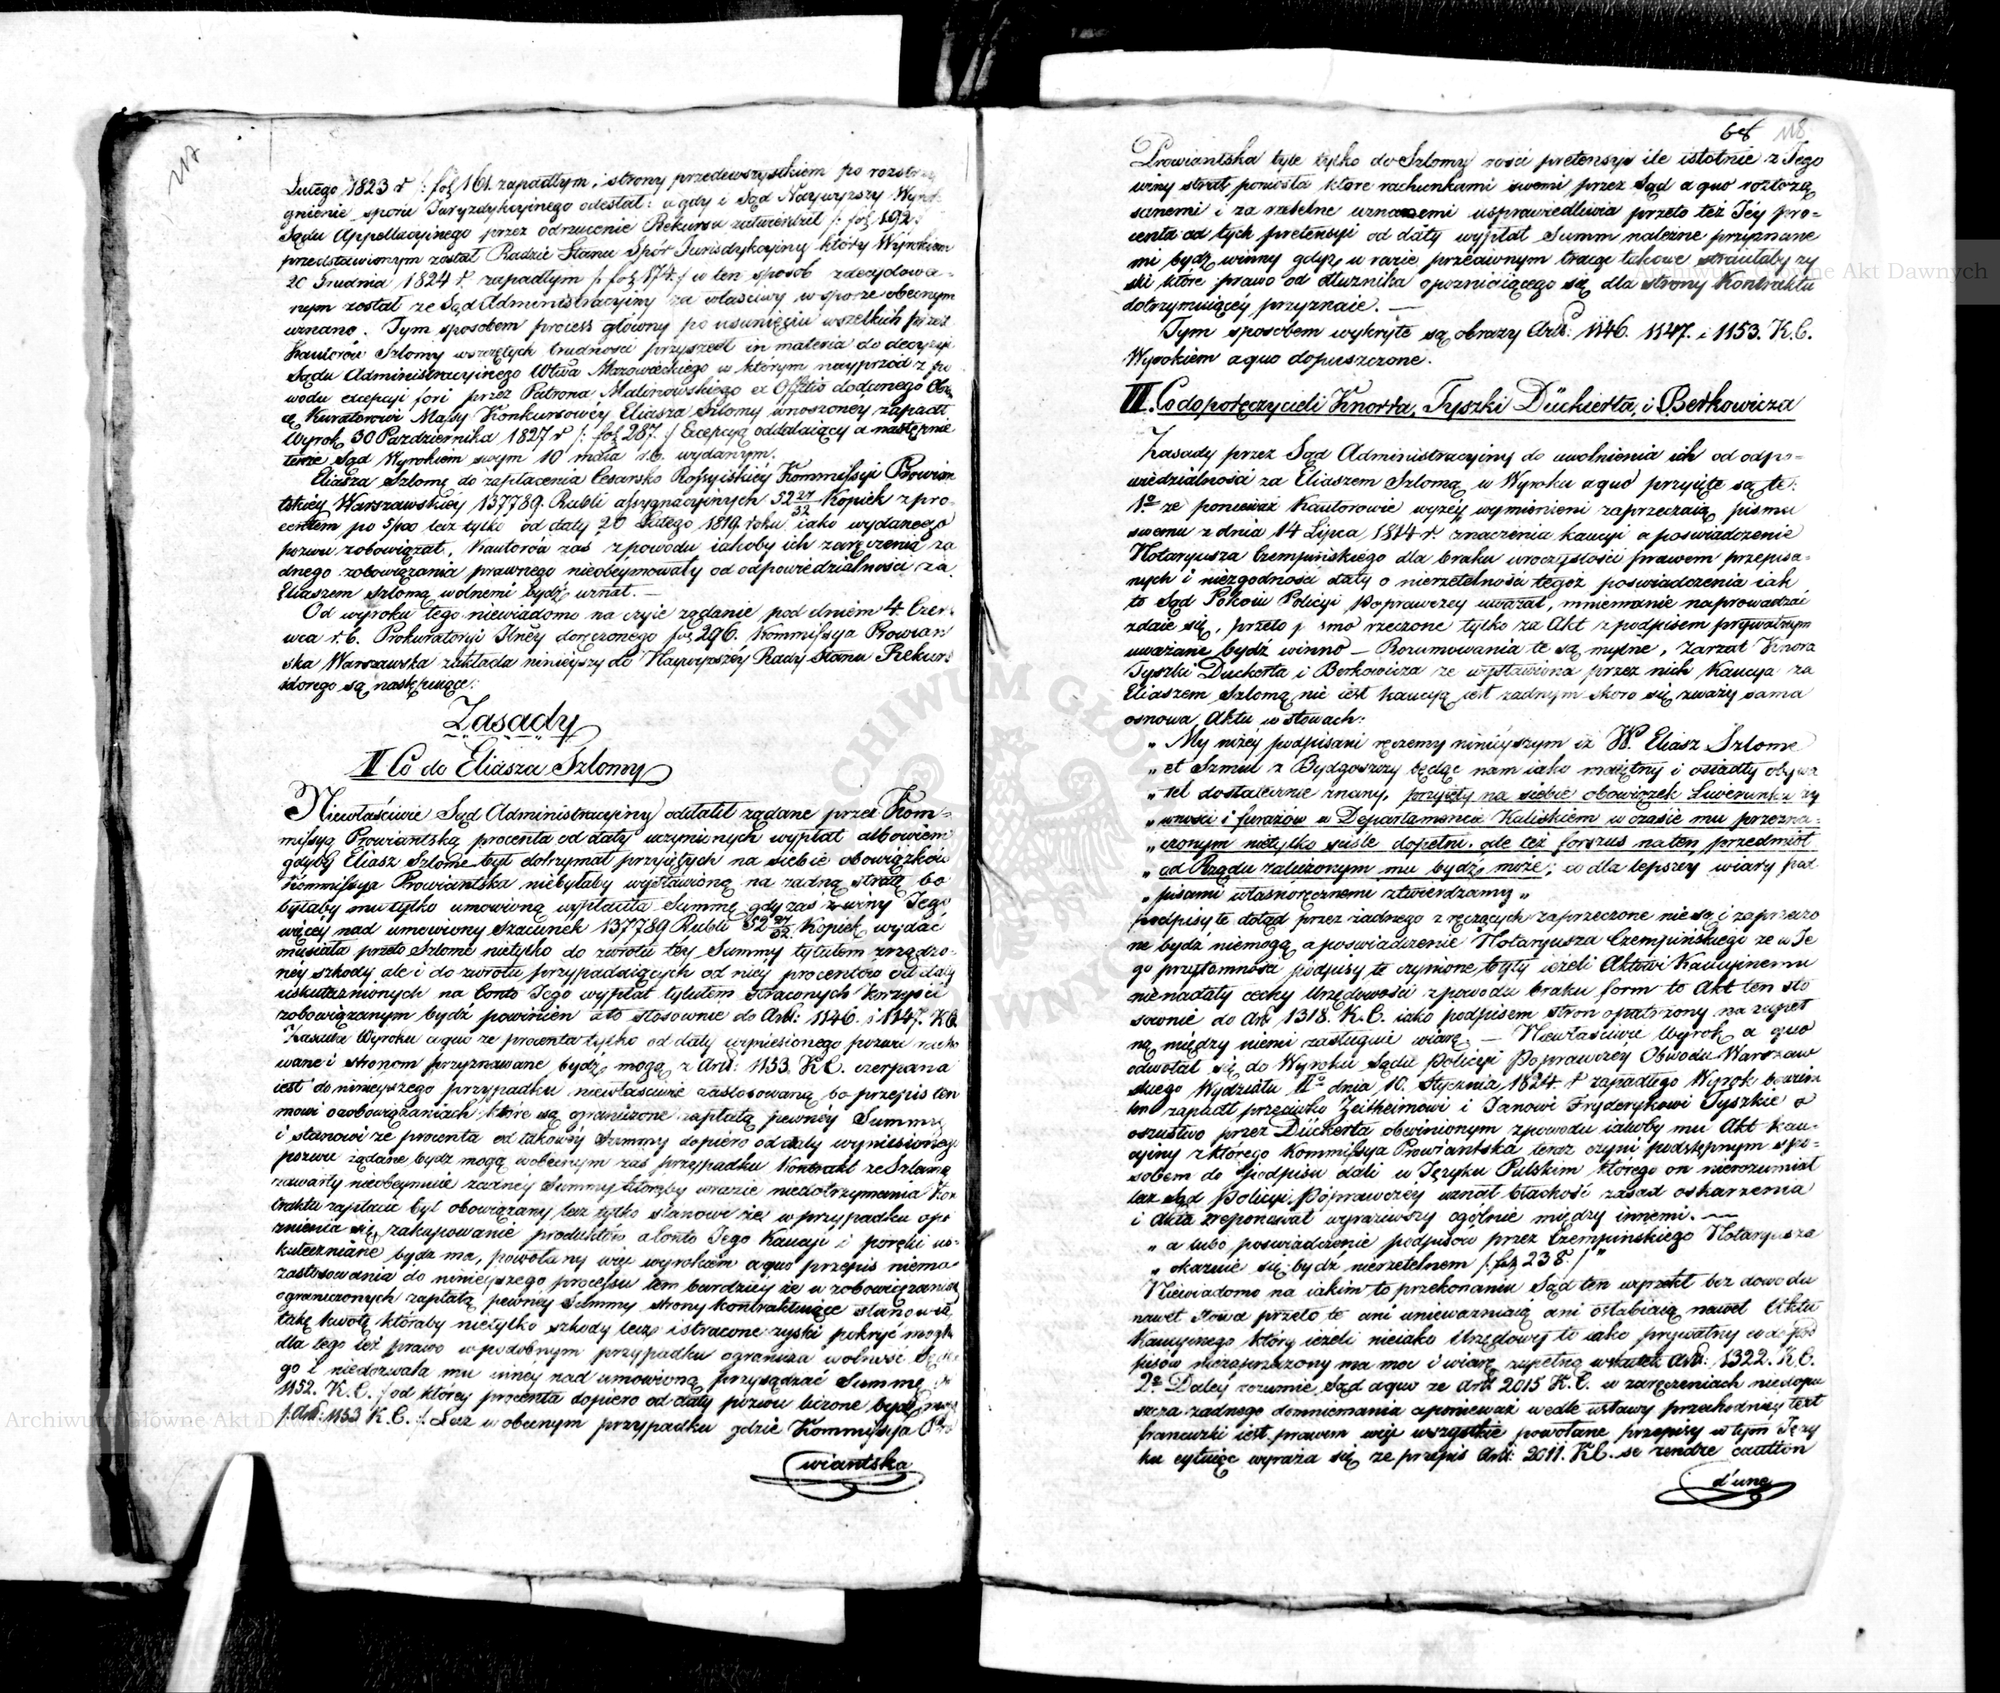 217
Lutego 1823 r /: fol 161. zapadłym, strony przedewszystkiem po rozstrzy
gnienie sporu Juryzdykcyjnego odesłał: a gdy i Sąd Naywyższy Wyrok
Sądu Appellacyinego przez odrzucenie Rekursu zatwierdził /: fol 192:/
przedstawionym został Radzie Stanu Spór Jurisdykcyiny który Wyrokiem
20 Grudnia 1824 r. zapadłym /: fol 174:/ w ten sposób zdecydowa-
nym został że Sąd Administracyiny za właściwy w sporze obecnym
uznano. Tym sposobem process główny po usunięciu wszelkich przez
Kautorów Szlomy wszczętych trudności przyszedł in materia do decyzyi
Sądu Administracyinego Wtwa Mazowieckiego w którym nayprzód z po
wodu excepcyi fori przez Patrona Malinowskiego ex Officio dodanego Obro
cę Kuratorowi Massy Konkursowéy Eliasza Szlomy wnoszonéy zapadł
Wyrok 30 Pazdziernika 1827 r /: fol 287. :/ Excepcyą oddalaiący a następnie
tenże Sąd Wyrokiem swym 10 maia r.b. wydanym.
Eliasza Szlomę do zapłacenia Cesarsko Rossyiskiéy Kommissyi Prowian
tskiéy Warszawskiéy 137789. Rubli assygnacyinych 52 27/32 Kopiek z pro-
centem po 5/100 lecz tylko od daty 20 Lutego 1819 roku iako wydanego
pozwu zobowiązał, Kautorów zaś z powodu iakoby ich zaręczenia ża
dnego zobowiązania prawnego nieobeymowały od odpowiedzialności za
Eliaszem Szlomą wolnemi bydź uznał. —
Od wyroku tego niewiadomo na czyie żądanie pod dniem 4. Czer
wca r.b. Prokuratoryi Jlnéy doręczonego fol 296. Kommissya Prowian
ska Warszawska zakłada ninieyszy do Naywyższéy Rady Stanu Rekurs
którego są następuiące:
Zasady
II Co do Eliasza Szlomy
Niewłaściwie Sąd Administracyiny oddalił żądane przez Kom-
missyą Prowiantską procenta od daty uczynionych wypłat albowiem
gdyby Eliasz Szlome był dotrzymał przyiętych na siebie obowiązków
Kommissya Prowiantska niebyłaby wystawioną na żadną stratę bo
byłaby mu tylko umowioną wypłaciła Summę, gdy zaś z winy Jego
więcéy nad umowiony szacunek 137789 Rubli 52 27/32. Kopiek wydać
musiała przeto Szlome nietylko do zwrotu téy Summy tytułem zrządzo-
néy szkody ale i do zwrotu przypadaiących od niéy procentów od daty
uskutecznionych na Conto Jego wypłat tytułem straconych korzyści
zobowiązanym bydź powinien a to stosownie do Art: 1146. i 1147. KC.
Zasada Wyroku a quo że procenta tylko od daty wyniesionego pozwu racho
wane i stronom przyznawane bydź mogą z Art: 1153. K.C. czerpana
iest do ninieyszego przypadku niewłaściwie zastosowaną bo przepis ten
mówi o zobowiązaniach, które są ograniczone zapłatą pewnéy Summy
i stanowi że procenta od takowéy Summy dopiero od daty wyniesionego
pozwu żądane bydź mogą w obecnym zaś przypadku Kontrakt ze Szlomą
zawarty nieobeymuie żadnéy Summy któraby w razie niedotrzymania Kon
traktu zapłacić był obowiązany lecz tylko stanowi że w przypadku opó
źnienia się zakupowanie produktów a Conto Jego Kaucyi i poręki us-
kutecznione bydź ma, powołany więc wyrokiem a quo przepis niema
zastosowania do ninieyszego processu tem bardziéy że w zobowiązaniach
ograniczonych zapłatą pewnéy Summy strony kontraktuiące stanowią
taką kwotę któraby nietylko szkody lecz i stracone zyski pokryć mogła
dla tego też prawo w podobnym przypadku ogranicza wolność Sędzie
go i niedozwala mu innéy nad umowioną przysądzać Summę
1152. K.C. / od któréy procenta dopiero od daty pozwu liczone bydź mogą
/: Art: 1153 K.C. :/. Lecz w obecnym przypadku gdzie Kommissya Pro
wiantska
68 118
Prowiantska tyle tylko do Szlomy rości pretensyi ile istotnie z Jego
winy strat poniosła które rachunkami swemi przez Sąd a quo roztrzą
sanemi i za rzetelne uznanemi usprawiedliwia przeto też Jéy pro-
centa od tych pretensyi od daty wypłat Summ należne przyznane
mi bydź winny gdyż w razie przeciwnym tracąc takowe straciłaby zy
ski które prawo od dłużnika opozniaiącego się dla strony Kontraktu
dotrzymuiącéy przyznaie. —
Tym sposobem wykryte są obrazy Art: 1146. 1147. i 1153. K.C.
Wyrokiem a quo dopuszczone.
III. Co do poręczycieli Knorra, Tyszki Dückerta, i Berkowicza
Zasady przez Sąd Administracyiny do uwolnienia ich od odpo-
wiedzialności za Eliaszem Szlomą w Wyroku a quo przyięte są te:
1o że ponieważ Kautorowie wyżéy wymienieni zaprzeczaią pismu
swemu z dnia 14 Lipca 1814 r. znaczenia kaucyi a poświadczenie
Notaryusza Czempińskiego dla braku uroczystości prawem przepisa-
nych i niezgodności daty o nierzetelność tegoż poświadczenia iak
to Sąd Pokoiu Policyi Poprawczey uważał, mniemanie naprowadzać
zdaie się, przeto p smo rzeczone tylko za Akt z podpisem prywatnym
uważane bydź winno — Rozumowania te są mylne, Zarzut Knora
Tyszki Duckerta i Berkowicza że wystawiona przez nich Kaucya za
Eliaszem Szlomą nie iest kaucyą iest żadnym skoro się zważy sama
osnowa Aktu w słowach:
„ My niżéy podpisani ręczemy ninieyszym iż W. Eliasz Szlome
„ et Szmul z Bydgoszczy będąc nam iako maiętny i osiadły obywa
„ tel dostatecznie znany, przyięty na siebie obowiązek Liwerunku ży
„ wności i furażów w Departamencie Kaliskiem w czasie mu przezna-
„ czonym nietylko ściśle dopełni, ale też forszus na ten przedmiot
„ od Rządu zaliczonym mu bydź może; co dla lepszéy wiary pod
„ pisami własnoręcznemi ztwierdzamy „
podpisy te dotąd przez żadnego z ręczących zaprzeczone nie są i zaprzeczo
ne bydź niemogą a poświadczenie Notaryusza Czempińskiego że w Je
go przytomności podpisy te czynione były ieżeli Aktowi Kaucyinemu
nienadały cechy Urzędowości z powodu braku form to Akt ten sto
sownie do Art 1318. K.C. iako podpisem stron opatrzony na zupeł
ną między niemi zasługuie wiarę. — Niewłaściwie Wyrok a quo
odwołał się do Wyroku Sądu Policyi Poprawczéy Obwodu Warszaw
skiego Wydziału IIo dnia 10. Stycznia 1824. r zapadłego Wyrok bowiem
ten zapadł przeciwko Zeitheimowi i Janowi Fryderykowi Tyszkie o
oszustwo przez Dückerta obwinionym z powodu iakoby mu Akt kau-
cyiny z którego Kommissya Prowiantska teraz czyni podstępnym spo-
sobem do podpisu dali w Języku Polskim którego on nierozumiał
lecz Sąd Policyi Poprawczéy uznał błachość zasad oskarżenia
i Akta zreponował wyraziwszy ogólnie między innemi. —
„ a lubo poświadczenie podpisów przez Czempińskiego Notaryusza
„ okazuie się bydź nierzetelnem /: fol 238 :/ „
Niewiadomo na iakim to przekonaniu Sąd ten wyrzekł bez dowodu
nawet słowa przeto te ani unieważniaią ani osłabiaią nawet Aktu
Kaucyinego który ieżeli nieiako Urzędowy to iako prywatny co do pod
pisów niezaprzeczony ma moc i wiarę zupełną wskutek Art: 1322. K.C.
2o Daléy rozumie Sąd a quo że Art 2015 K.C. w zaręczeniach niedopu
szcza żadnego domniemania a ponieważ wedle ustawy przechodniéy text
francuzki iest prawem więc wszystkie powołane przepisy w tym Języ
ku cytuiąc wyraża się że przepis Art: 2011. K.C. se rendre caution
d'une